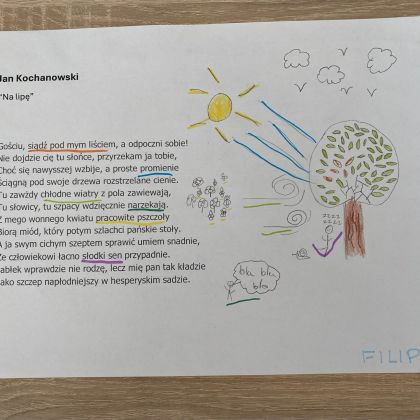 Jan Kochanowski
"Na lipę"
Gościu, siądź pod mym liściem, a odpoczni sobie!
Nie dojdzie cię tu słońce, przyrzekam ja tobie,
Choć się nawysszej wzbije, a proste promienie
Ściągną pod swoje drzewa rozstrzelane cienie.
Tu zawżdy chłodne wiatry z pola zawiewają,
Tu słowicy, tu szpacy wdzięcznie narzekają.
Z mego wonnego kwiatu pracowite pszczoły
Biorą miód, który potym szlachci pańskie stoły.
A ja swym cichym szeptem sprawić umiem snadnie,
Że człowiekowi łacno słodki sen przypadnie.
Jabłek wprawdzie nie rodzę, lecz mię pan tak kładzie
Jako szczep napłodniejszy w hesperyskim sadzie.
zzzz
zzzz
bla bla
bla
FILIP